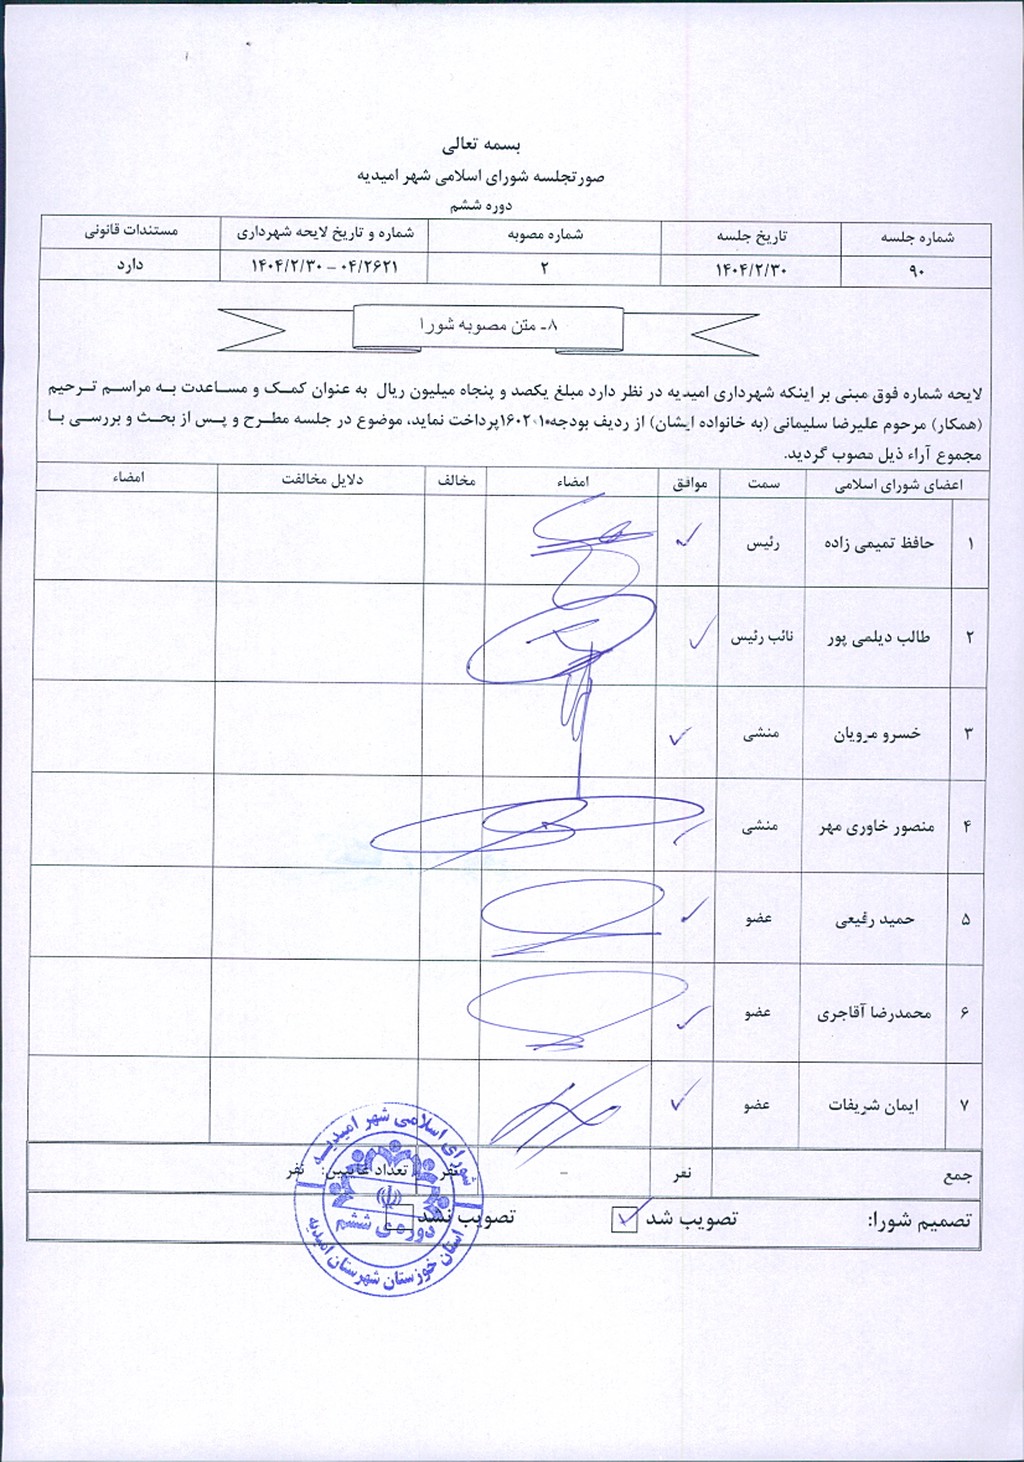 بسمه تعالی
صورتجلسه شورای اسلامی شهر امیدیه
دوره ششم
شماره جلسه تاریخ جلسه شماره مصوبه شماره و تاریخ لایحه شهرداری مستندات قانونی
۹۰ ۱۴۰۴/۲/۳۰ ۲ ۰۴/۲۶۲۱ – ۱۴۰۴/۲/۳۰ دارد
۸- متن مصوبه شورا
لایحه شماره فوق مبنی بر اینکه شهرداری امیدیه در نظر دارد مبلغ یکصد و پنجاه میلیون ریال به عنوان کمک و مساعدت به مراسم ترحیم
(همکار) مرحوم علیرضا سلیمانی (به خانواده ایشان) از ردیف بودجه۱۶۰۲۰۱۰پرداخت نماید، موضوع در جلسه مطرح و پس از بحث و بررسی با
مجموع آراء ذیل مصوب گردید.
اعضای شورای اسلامی سمت موافق امضاء مخالف دلایل مخالفت امضاء
۱ حافظ تمیمی زاده رئیس
۲ طالب دیلمی پور نائب رئیس
۳ خسرو مرویان منشی
۴ منصور خاوری مهر منشی
۵ حمید رفیعی عضو
۶ محمدرضا آقاجری عضو
۷ ایمان شریفات عضو
جمع نفر - نفر تعداد غایبین: نفر
تصمیم شورا: تصویب شد تصویب نشد
شورای اسلامی شهر امیدیه
دوره‌ی ششم
استان خوزستان شهرستان امیدیه